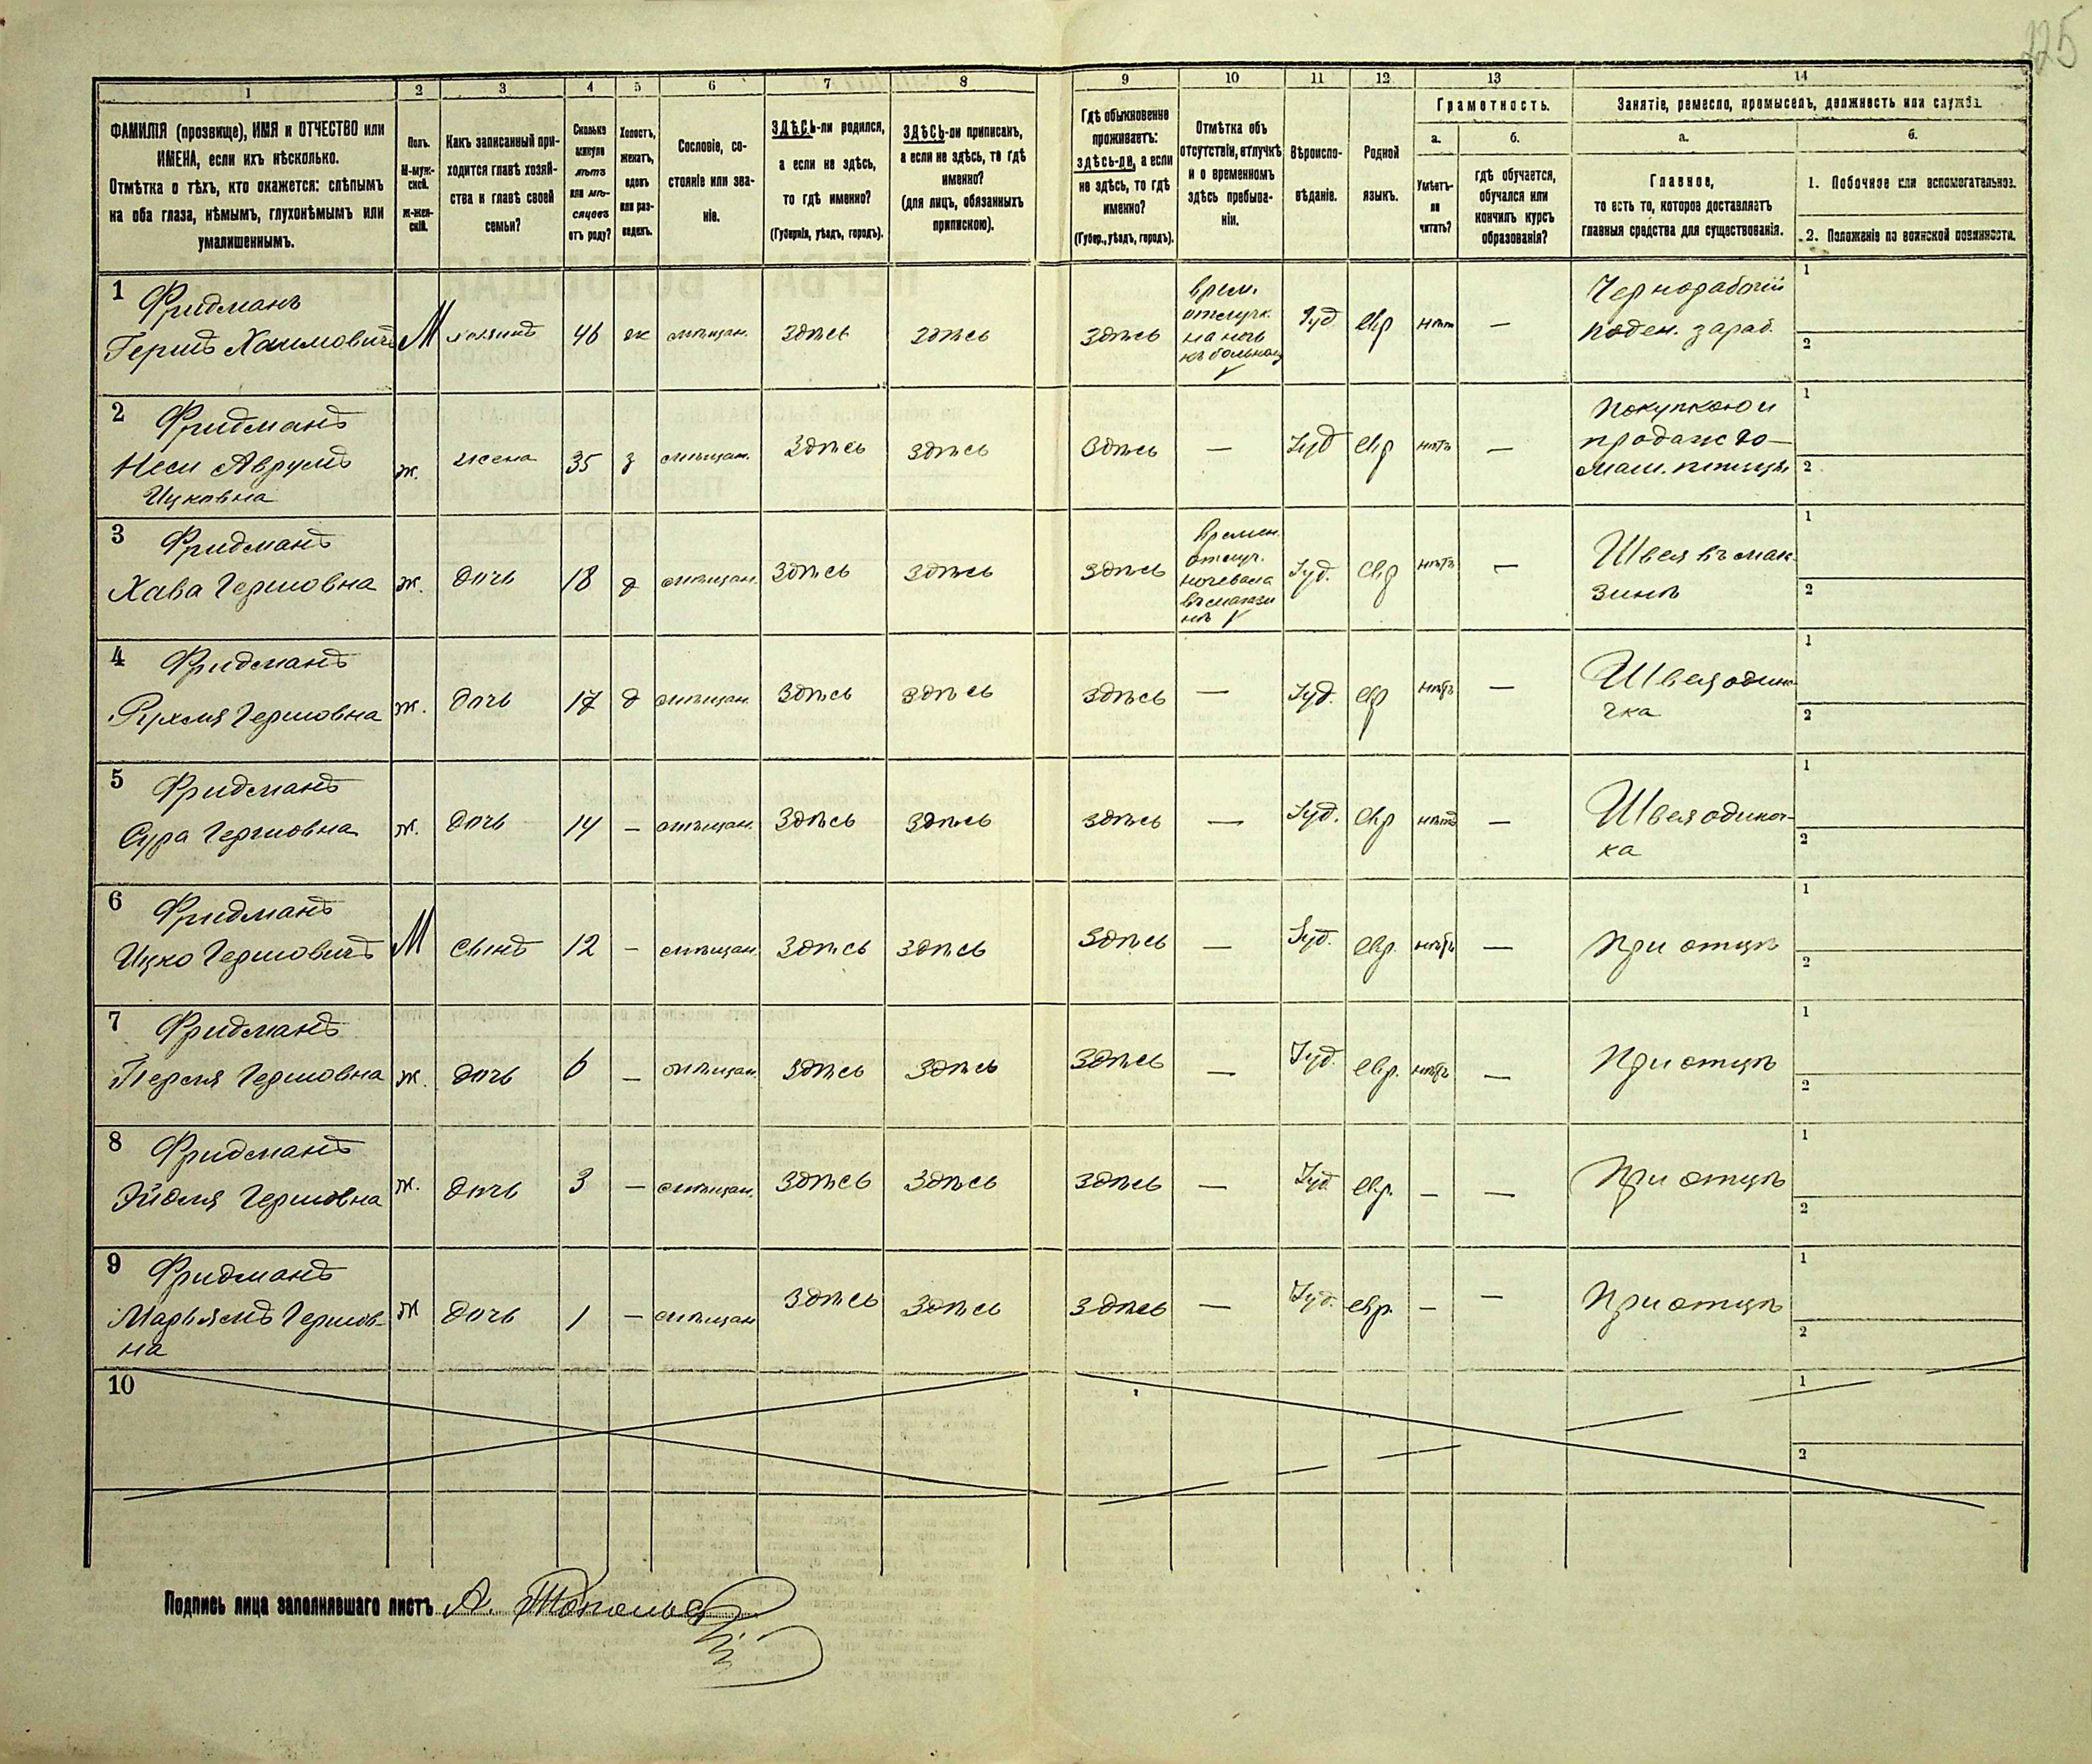 225
1 2 3 4 5 6 7 8 9 10 11 12 13 14
ФАМИЛІЯ (прозвище), ИМЯ и ОТЧЕСТВО или
ИМЕНА, если ихъ нѣсколько.
Отмѣтка о тѣхъ, кто окажется: слѣпымъ
на оба глаза, нѣмымъ, глухонѣмымъ или
умалишеннымъ.
Полъ.
М-муж-
ской.
Ж-жен-
скій.
Какъ записанный при-
ходится главѣ хозяй-
ства и главѣ своей
семьи?
Сколько
минуло
лѣтъ
или мѣ-
сяцевъ
отъ роду?
Холостъ,
женатъ,
вдовъ
или раз-
веденъ.
Сословіе, со-
стояніе или зва-
ніе.
ЗДѢСЬ-ли родился,
а если не здѣсь,
то гдѣ именно?
(Губернія, уѣздъ, городъ).
ЗДѢСЬ-ли приписанъ,
а если не здѣсь, то гдѣ
именно?
(для лицъ, обязанныхъ
припискою).
Гдѣ обыкновенно
проживаетъ:
здѣсь-ли, а если
не здѣсь, то гдѣ
именно?
(Губер., уѣздъ, городъ).
Отмѣтка объ
отсутствіи, отлучкѣ
и о временномъ
здѣсь пребыва-
ніи.
Вѣроиспо-
вѣданіе.
Родной
языкъ.
Грамотность.
а.
Умѣетъ-
ли
читать?
б.
гдѣ обучается,
обучался или
кончилъ курсъ
образованія?
Занятіе, ремесло, промыселъ, должность или служба.
а.
Главное,
то есть то, которое доставляетъ
главныя средства для существованія.
б.
1. Побочное или вспомогательное.
2. Положеніе по воинской повинности.
1 Фридманъ
Гершъ Хаимовичъ М хозяинъ 46 ж мѣщан. здѣсь здѣсь здѣсь
врем.
отлуч.
на ночь
къ больному
Іуд евр нѣт —
Чернорабочій
поден. зараб.
1
2
2 Фридманъ
Неси Аврумъ
Ицковна
ж. жена 35 з мѣщан. здѣсь здѣсь здѣсь — Іуд евр нѣтъ —
Покупкою и
продаж до-
маш. птицы
1
2
3 Фридманъ
Хава Гершовна ж. дочь 18 д мѣщан. здѣсь здѣсь здѣсь
времен.
отлуч.
ночевала
въ магази
нѣ
Іуд. евр нѣтъ —
Швея въ мага-
зинѣ
1
2
4 Фридманъ
Рухля Гершовна ж. дочь 17 д мѣщан. здѣсь здѣсь здѣсь — Іуд. евр нѣтъ —
Швея одино
чка
1
2
5 Фридманъ
Сура Гершовна ж. дочь 14 — мѣщан. здѣсь здѣсь здѣсь — Іуд. евр нѣтъ —
Швея одиноч-
ка
1
2
6 Фридманъ
Ицко Гершовичъ М сынъ 12 — мѣщан. здѣсь здѣсь здѣсь — Іуд. евр. нѣтъ — при отцѣ
1
2
7 Фридманъ
Перля Гершовна ж. дочь 6 — мѣщан. здѣсь здѣсь здѣсь — Іуд. евр. нѣтъ — При отцѣ
1
2
8 Фридманъ
Эйдля Гершовна ж. дочь 3 — мѣщан. здѣсь здѣсь здѣсь — Іуд. евр. — — При отцѣ
1
2
9 Фридманъ
Марьямъ Гершов-
на
ж дочь 1 — мѣщан здѣсь здѣсь здѣсь — Іуд. евр. — — При отцѣ
1
2
10
1
2
Подпись лица заполнявшаго листъ А.